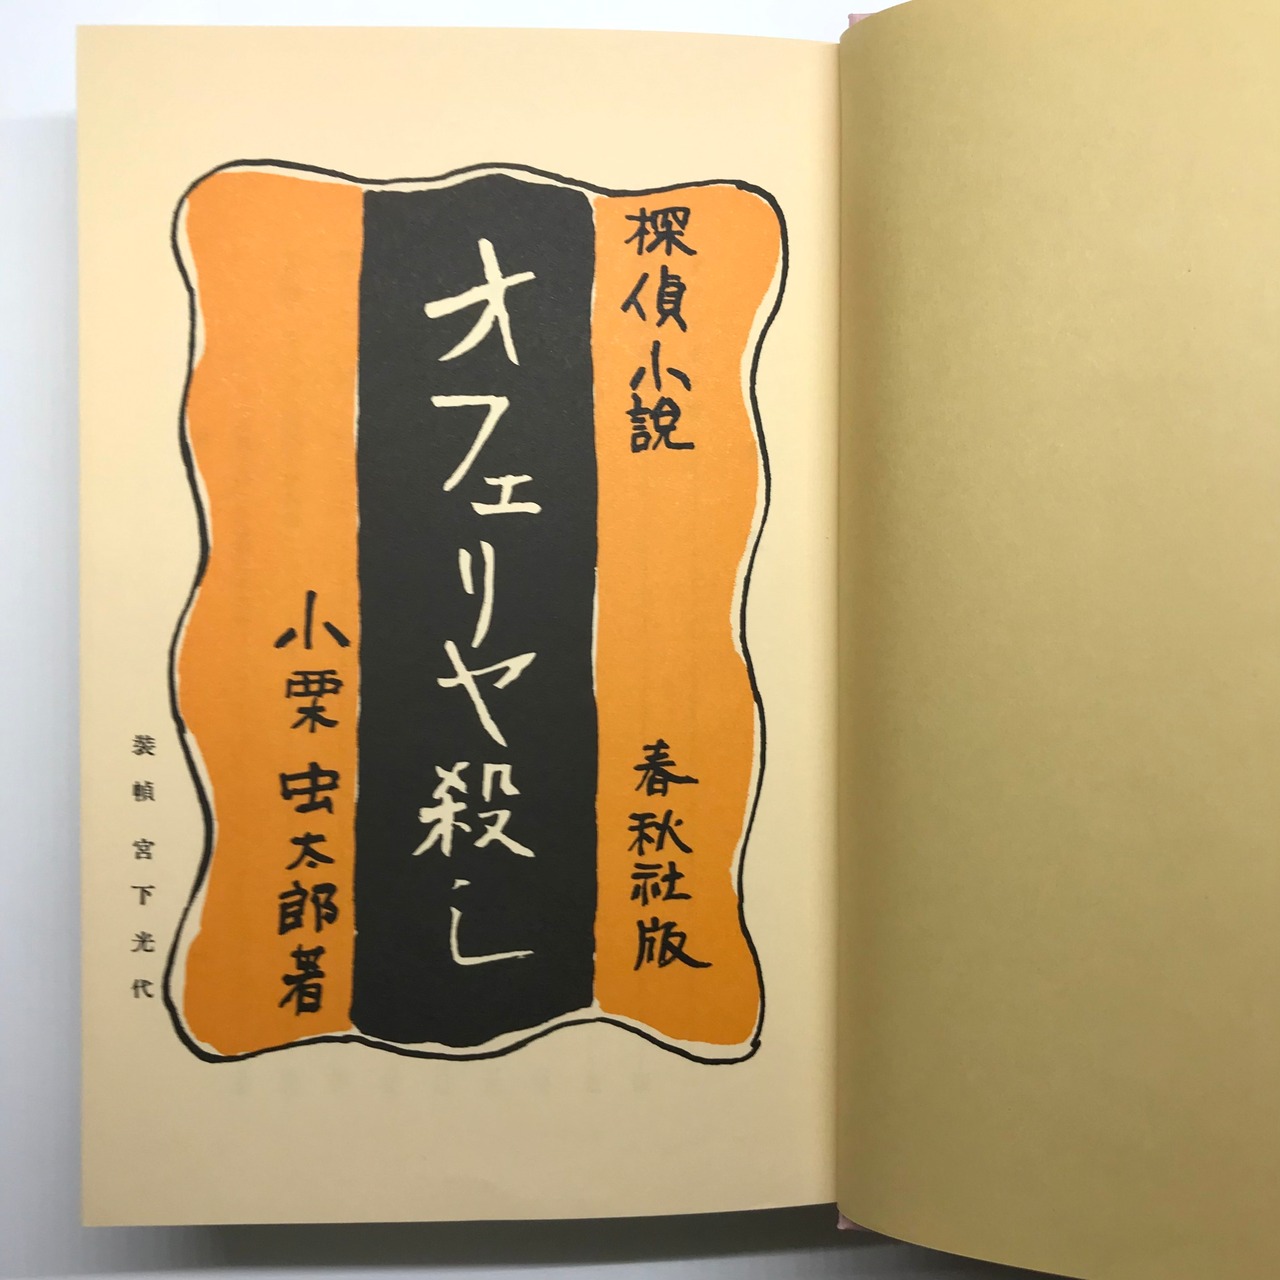 探偵小説
春秋社版
オフェリヤ殺し
小栗虫太郎著
装幀 宮下光代